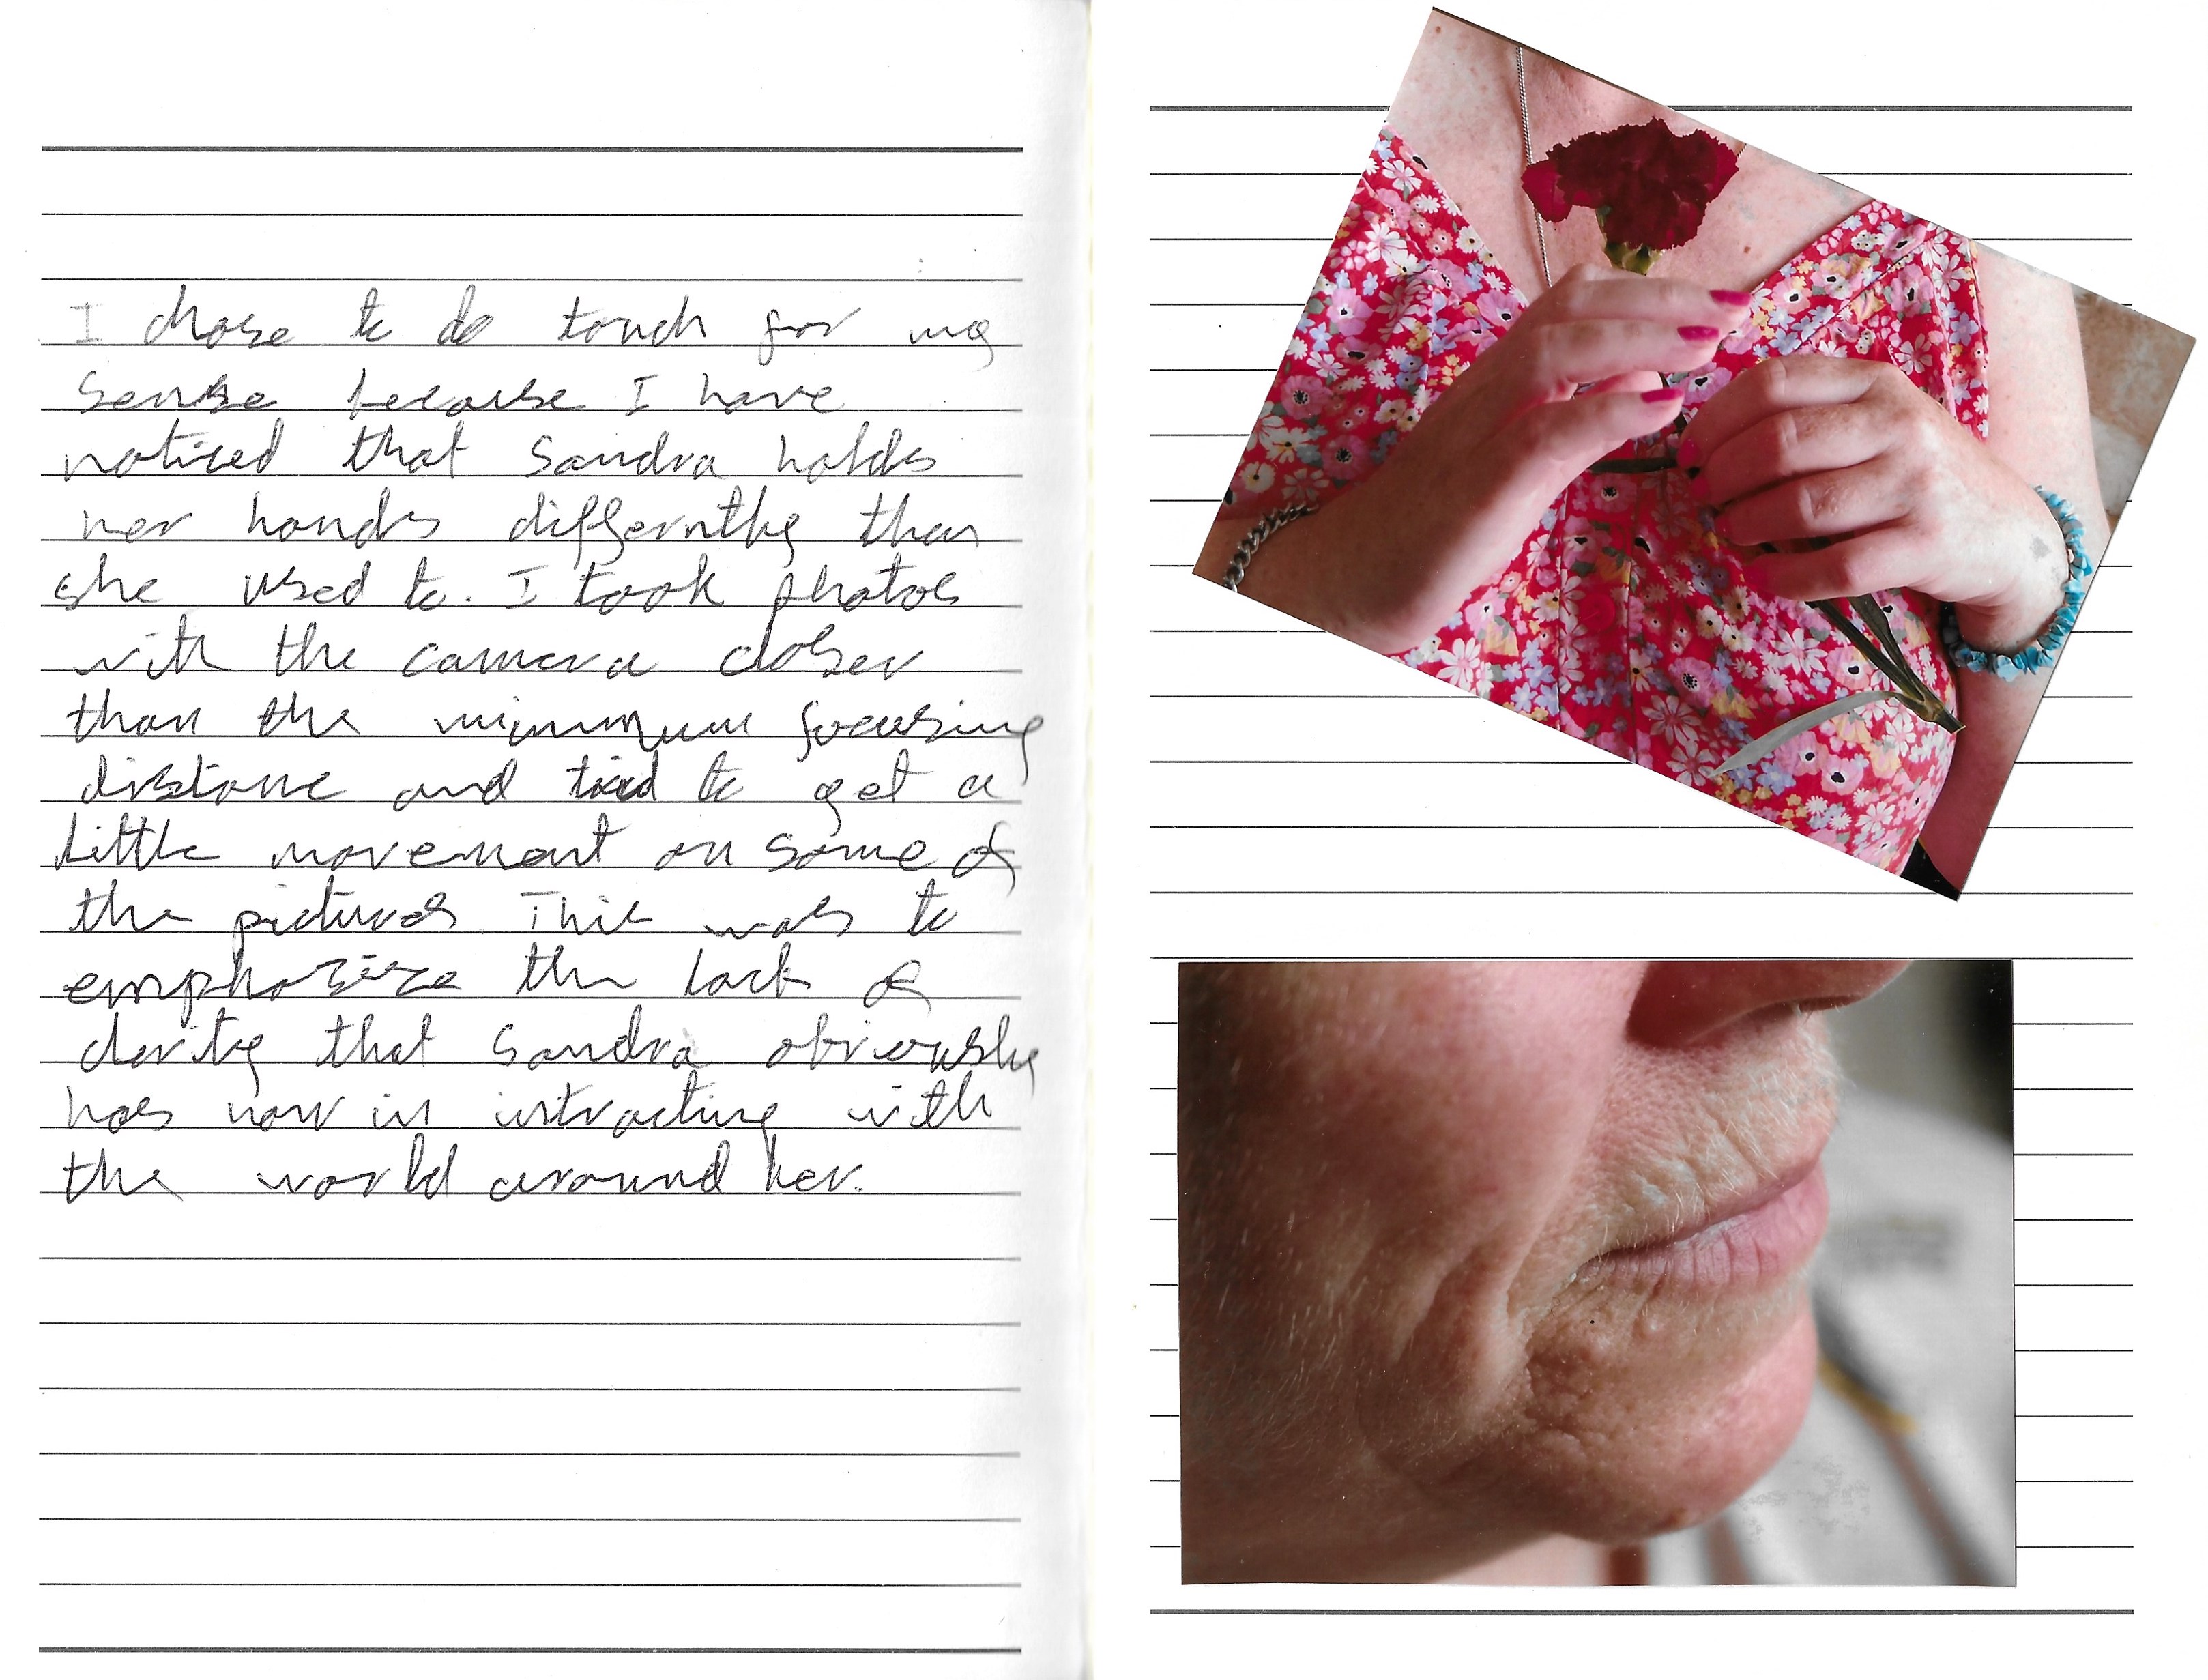 I chose to do touch for my
sense because I have
noticed that Sandra holds
her hands differntly than
she used to. I took photos
with the camera closer
than the minimum focusing
distance and tried to get a
little movement on some of
the pictures This was to
emphasize the lack of
clarity that Sandra obviously
has now in intracting with
the world around her.